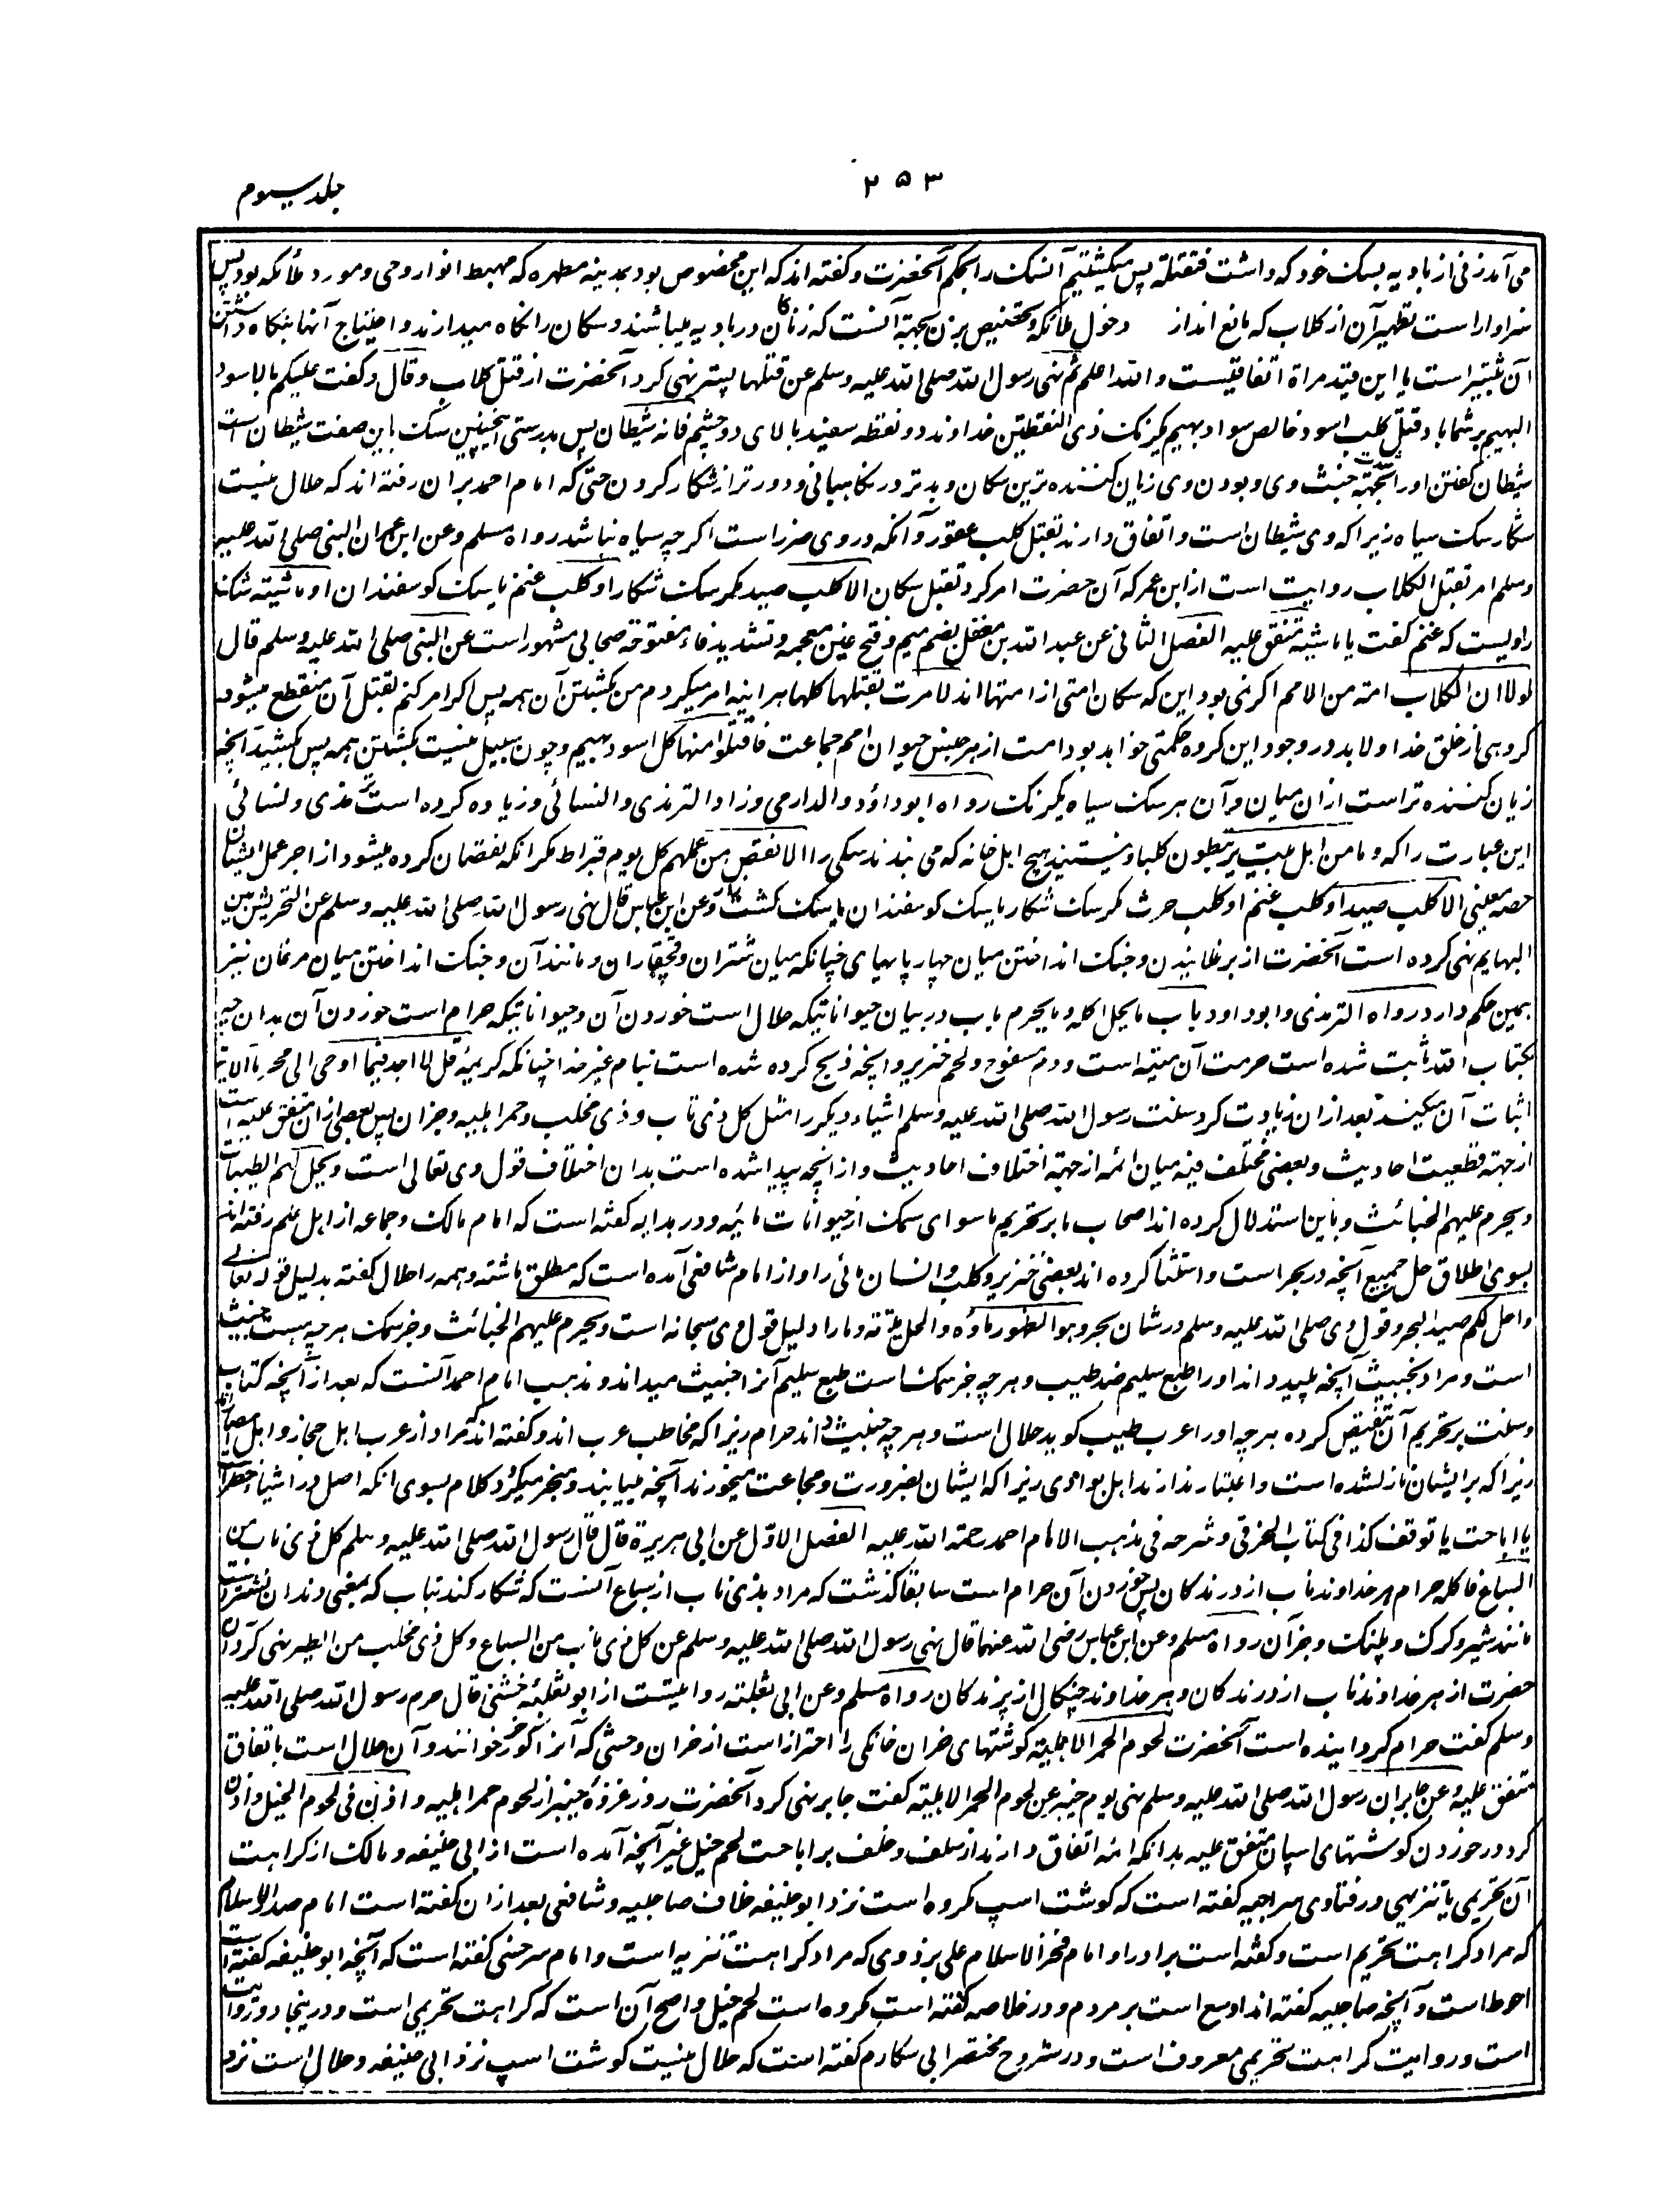 جلد سیوم
۲۵۳
می آمد زنی از بادیه بسگ خود که داشت فنقتله پس میکشتیم آن سگ را بحکم آنحضرت و گفته اند که این مخصوص بود بمدینه مطهره که مهبط انوار وحی و مورد ملائکه بود پس
سزاوار است تطهیر آن از کلاب که مانع انداز دخول ملائکه و تخصیص بزن بجهته آنست که زنان در بادیه میباشند و سگان را نگاه میدارند و احتیاج آنها بنگاه داشتن
آن بیشتر است یا این قید مراة اتفاقیست و الله اعلم ثم نهی رسول الله صلی الله علیه وسلم عن قتلها پستر نهی کرد آنحضرت از قتل کلاب وقال و گفت علیکم بالاسود
البهیم بر شما باد قتل کلب اسود خالص سواد بهیم یکرنگ ذی النقطتین خداوند دو نقطه سفید بالای دو چشم فانه شیطان پس بدرستی اینچنین سگ باین صفت شیطان است
شیطان گفتن او را بجهته خبث وی و بودن وی زیان کننده ترین سگان و بدتر در نگاهبانی و دورتر از شکار کردن حتی که امام احمد بران رفته اند که حلال نیست
شکار سگ سیاه زیرا که وی شیطان است و اتفاق دارند بقتل کلب عقور و آنکه در وی ضرر است اگرچه سیاه نباشد رواه مسلم وعن ابن عمر ان النبی صلی الله علیه
وسلم امر بقتل الکلاب روایت است از ابن عمر که آن حضرت امر کرد بقتل سگان الا کلب صید مگر سگ شکار او کلب غنم یا سگ گوسفندان او ماشیة شک
راویست که غنم گفت یا ماشیة متفق علیه الفصل الثانی عن عبد الله بن مغفل بضم میم و فتح غین معجمه و تشدید فاء مفتوحه صحابی مشهور است عن النبی صلی الله علیه وسلم قال
لولا ان الکلاب امة من الامم اگر نمی بود این که سگان امتی از امتها اند لامرت بقتلها کلها هر آینه امر میکردم من بکشتن آن همه پس اگر امر کنم بقتل آن منقطع میشود
گروهی از خلق خدا و لابد در وجود این گروه حکمتی خواهد بود امت از هر جنس حیوان امم جماعت فاقتلوا منها کل اسود بهیم و چون سبیل نیست بکشتن همه پس بکشید آنچه
زیان کننده تر است ازان میان و آن هر سگ سیاه یکرنگ رواه ابو داؤد والدارمی وزاد الترمذی والنسائی و زیاده کرده است ترمذی و نسائی
این عبارت را که وما من اهل بیت یرتبطون کلبا و نیستند هیچ اهل خانه که می بندند سگی را الا نقص من عملهم کل یوم قیراط مگر آنکه نقصان کرده میشود از اجر عمل ایشان
حصه معینی الا کلب صید او کلب غنم او کلب حرث مگر سگ شکار یا سگ گوسفندان یا سگ کشت وعن ابن عباس قال نهی رسول الله صلی الله علیه وسلم عن التحریش بین
البهایم نهی کرده است آنحضرت از برغلانیدن و جنگ انداختن میان چهارپایهای چنانکه میان شتران و قچقاران و مانند آن و جنگ انداختن میان مرغان نیز
همین حکم دارد رواه الترمذی وابو داود باب ما یحل اکله وما یحرم باب در بیان حیواناتیکه حلال است خوردن آن و حیواناتیکه حرام است خوردن آن بدان چه
بکتاب الله ثابت شده است حرمت آن میته است و دم مسفوح و لحم خنزیر و آنچه ذبح کرده شده است بنام غیر خدا چنانکه کریمه قل لا اجد فیما اوحی الی محرما الایة
اثبات آن میکیند بعد ازان زیادت کرد سنت رسول الله صلی الله علیه وسلم اشیاء دیگر را مثل کل ذی ناب و ذی مخلب و حمر اهلیه و جز ان پس بعضی ازان متفق علیه است
از جهته قطعیت احادیث و بعضی مختلف فیه میان ائمه از جهته اختلاف احادیث و از آنچه پیدا شده است بدان اختلاف قول وی تعالی است ویحل لهم الطیبات
ویحرم علیهم الخبائث و باین استدلال کرده اند اصحاب ما بر تحریم ما سوای سمک از حیوانات مائیه و در هدایه گفته است که امام مالک و جماعه از اهل علم رفته اند
بسوی اطلاق حل جمیع آنچه در بحر است و استثنا کرده اند بعضی خنزیر و کلب و انسان مائی را و از امام شافعی آمده است که مطلق داشته و همه را حلال گفته بدلیل قوله تعالی
واحل لکم صید البحر و قول وی صلی الله علیه وسلم در شان بحر وهو الطهور ماؤه والحل میتته و ما را دلیل قول وی سبحانه است ویحرم علیهم الخبائث و جز سمک هر چه هست خبیث
است و مراد بخبیث آنچه پلید داند او را طبع سلیم ضد طیب و هر چه جز سمک است طبع سلیم آنرا خبیث میداند و مذهب امام احمد آنست که بعد از آنچه کتاب
وسنت بر تحریم آن تنصیص کرده هر چه او را عرب طیب گوید حلال است و هر چه خبیث داند حرام زیرا که مخاطب عرب اند و گفته اند که مراد از عرب اهل حجاز و اهل امصار
زیرا که بر ایشان نازل شده است و اعتبار ندارند اهل بوادی زیرا که ایشان بضرورت و مجاعت میخورند آنچه مییابند و منجر میگردد کلام بسوی آنکه اصل در اشیا حظر است
یا اباحت یا توقف کذا فی کتاب الخرقی و شرحه فی مذهب الامام احمد رحمة الله علیه الفصل الاول عن ابی هریرة قال قال رسول الله صلی الله علیه وسلم کل ذی ناب من
السباع فاکله حرام هر خداوند ناب از درندگان پس خوردن آن حرام است سابقا گذشت که مراد بذی ناب از سباع آنست که شکار کند بناب که بمعنی دندان نشتر است
مانند شیر و گرگ و پلنگ و جز آن رواه مسلم وعن ابن عباس رضی الله عنهما قال نهی رسول الله صلی الله علیه وسلم عن کل ذی ناب من السباع وکل ذی مخلب من الطیر نهی کرد آن
حضرت از هر خداوند ناب از درندگان و هر خداوند چنگال از پرندگان رواه مسلم وعن ابی ثعلبة روایتست از ابو ثعلبه خشنی قال حرم رسول الله صلی الله علیه
وسلم گفت حرام گردانیده است آنحضرت لحوم الحمر الاهلیة گوشتهای خران خانگی را احتراز است از خران وحشی که آنرا گورخر خوانند و آن حلال است باتفاق
متفق علیه وعن جابر ان رسول الله صلی الله علیه وسلم نهی یوم خیبر عن لحوم الحمر الاهلیة گفت جابر نهی کرد آنحضرت روز غزوه خیبر از لحوم حمر اهلیه واذن فی لحوم الخیل و اذن
کرد در خوردن گوشتهای اسپان متفق علیه بدانکه ائمه اتفاق دارند از سلف و خلف بر اباحت لحم خیل غیر آنچه آمده است از ابی حنیفه و مالک از کراهت
آن تحریمی یا تنزیهی در فتاوی سراجیه گفته است که گوشت اسپ مکروه است نزد ابو حنیفه خلاف صاحبیه و شافعی بعد ازان گفته است امام صدر الاسلام
که مراد کراهت تحریم است و گفته است برادر او امام فخر الاسلام علی بزدوی که مراد کراهت تنزیه است و امام سرخسی گفته است که آنچه ابو حنیفه گفته است
احوط است و آنچه صاحبیه گفته اند اوسع است بر مردم و در خلاصه گفته است مکروه است لحم خیل و اصح آن است که کراهت تحریمی است و درینجا دو روایت
است و روایت کراهت تحریمی معروف است و در شروح مختصر ابی مکارم گفته است که حلال نیست گوشت اسپ نزد ابی حنیفه و حلال است نزد